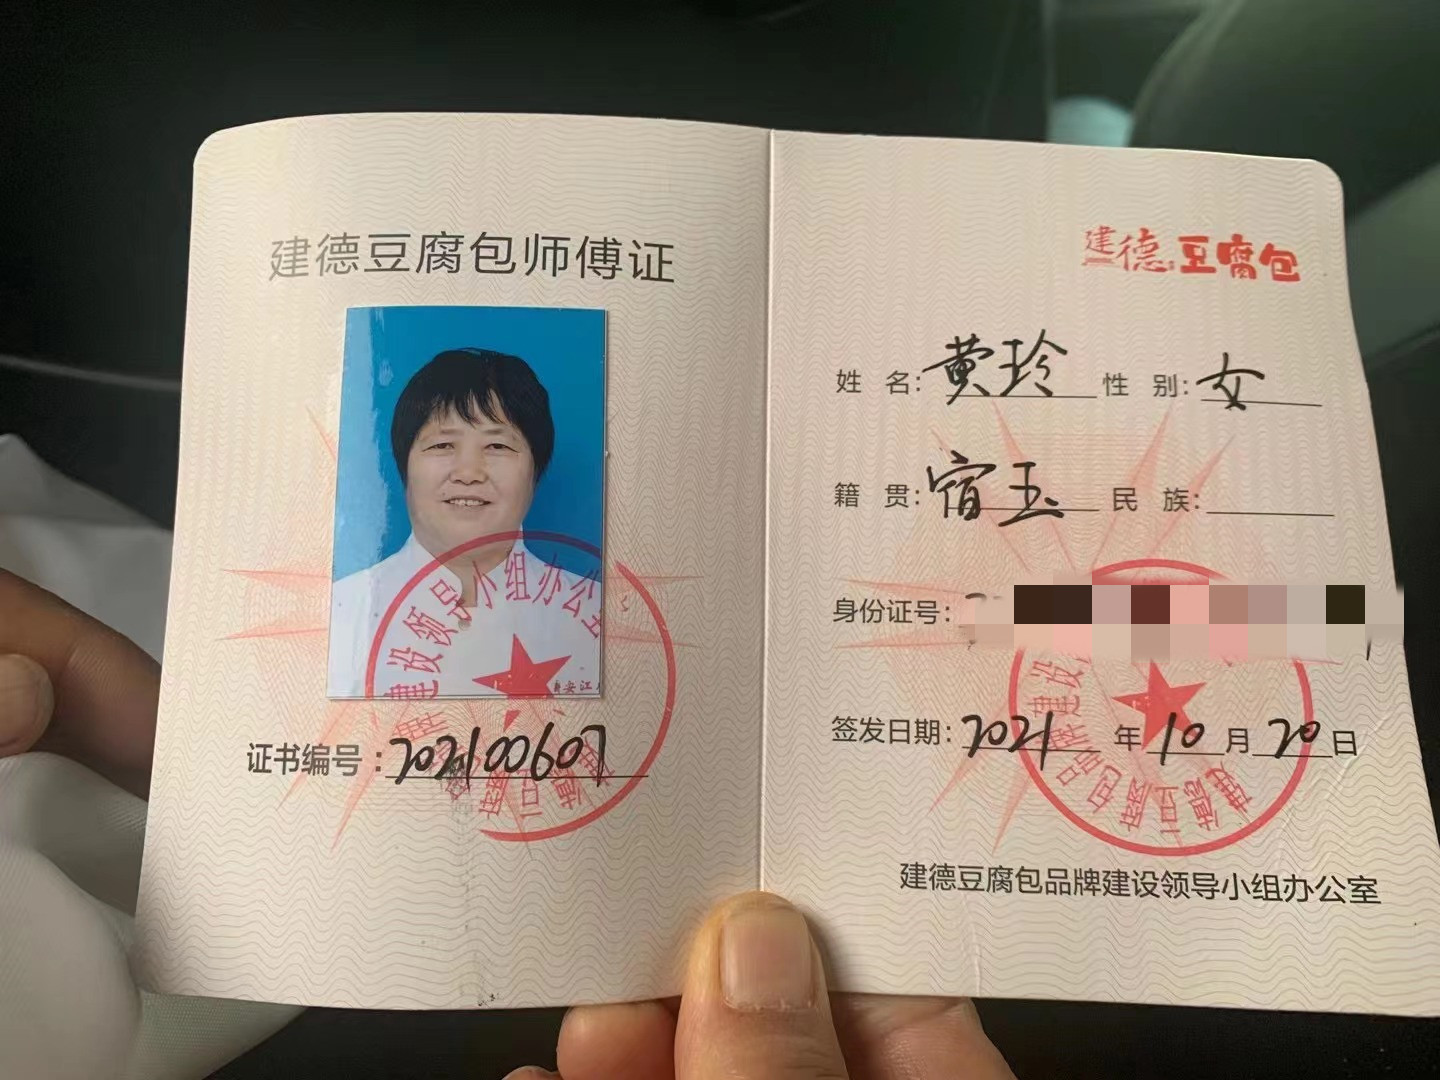 建德豆腐包师傅证
安江
建设领导小组办公室
证书编号：202100607
建德豆腐包
姓 名：黄玲 性 别：女
籍 贯：宿玉 民 族：
身份证号：
签发日期：2021年10月20日
建德豆腐包品牌建设领导小组办公室